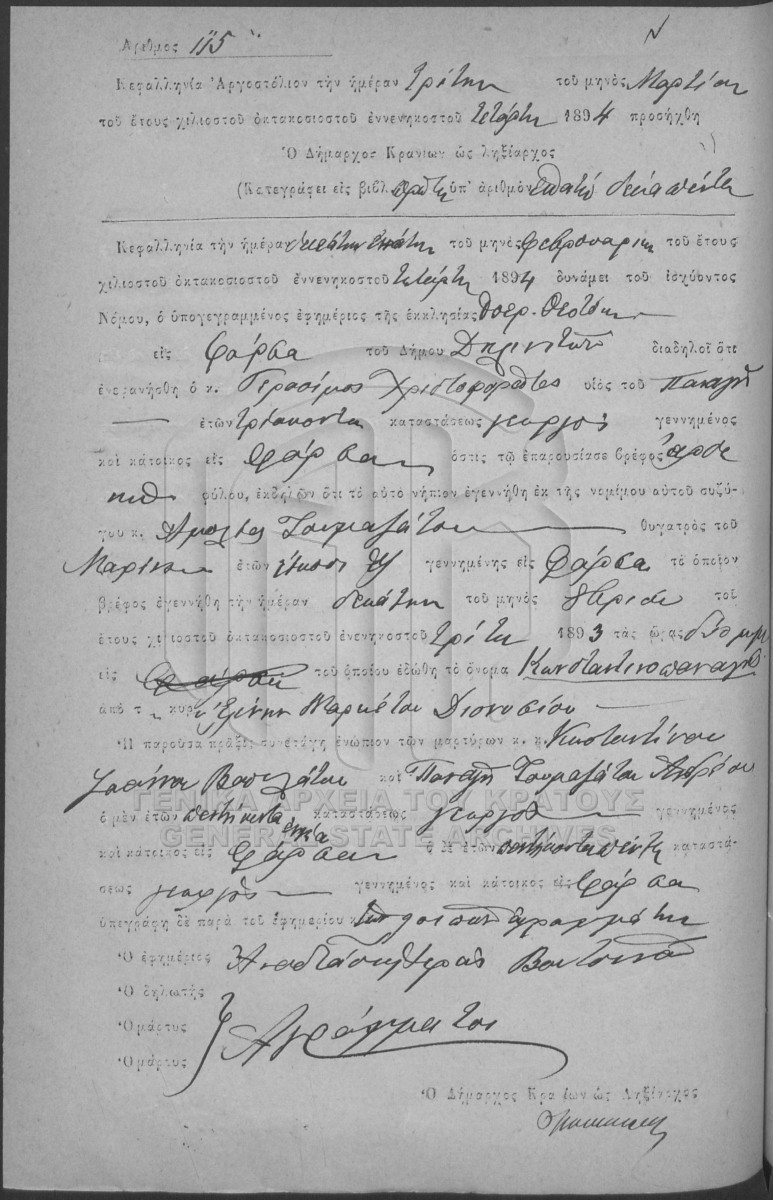 Ἀριθμὸς 115
Κεφαλληνία Ἀργοστόλιον τὴν ἡμέραν τρίτην τοῦ μηνὸς Μαρτίου
τοῦ ἔτους χιλιοστοῦ ὀκτακοσιοστοῦ ἐννενηκοστοῦ τετάρτου 1894 προσήχθη
Ὁ Δήμαρχος Κρανίων ὡς ληξίαρχος
(Κατεγράφει εἰς βιβλ. ὑπ' ἀριθμὸν ἑκατὸ δεκαπέντε
Κεφαλληνία τὴν ἡμέραν τοῦ μηνὸς Φεβρουαρίου τοῦ ἔτους
χιλιοστοῦ ὀκτακοσιοστοῦ ἐννενηκοστοῦ τετάρτου 1894 δυνάμει τοῦ ἰσχύοντος
Νόμου, ὁ ὑπογεγραμμένος ἐφημέριος τῆς ἐκκλησίας
εἰς Φάρσα τοῦ Δήμου διαδηλοῖ ὅτι
ἐνεφανήσθη ὁ κ. Γεράσιμος Χριστοφοράτος υἱὸς τοῦ Παναγῆ
ἐτῶν τριάκοντα καταστάσεως γεωργὸς γεννημένος
καὶ κάτοικος εἰς Φάρσα ὅστις τῷ ἐπαρουσίασε βρέφος ἄρσε
νικοῦ φύλου, ἐκδηλῶν ὅτι τὸ αὐτὸ νήπιον ἐγεννήθη ἐκ τῆς νομίμου αὐτοῦ συζύ-
γου κ. Τουμαζάτου θυγατρὸς τοῦ
Μαρίνου ἐτῶν εἴκοσι ἓξ γεννημένης εἰς Φάρσα τὸ ὁποῖον
βρέφος ἐγεννήθη τὴν ἡμέραν δεκάτην τοῦ μηνὸς τοῦ
ἔτους χιλιοστοῦ ὀκτακοσιοστοῦ ἐνενηκοστοῦ τρίτου 1893 τὰς ὥρας δύο μμ
εἰς τοῦ ὁποίου ἐδώθη τὸ ὄνομα Κωνσταντινοπαναγῆς
ἀπὸ τ κυρ Ἑλένην Μαρκέτου Διονυσίου
Ἡ παροῦσα πρᾶξις συνετάγη ἐνώπιον τῶν μαρτύρων κ. κ. Κωσταντίνου
Ἰωάννου Βασιλάτου καὶ Παναγῆ Τουμαζάτου Ἀνδρέου
ΓΕΝΙΚΑ ΑΡΧΕΙΑ ΤΟΥ ΚΡΑΤΟΥΣ
ὁ μὲν ἐτῶν πεντήκοντα ἐννέα καταστάσεως γεωργὸς γεννημένος
GENERAL STATE ARCHIVES
καὶ κάτοικος εἰς Φάρσα ὁ δὲ ἐτῶν πεντήκοντα πέντε καταστά-
σεως γεωργὸς γεννημένος καὶ κάτοικος εἰς Φάρσα
ὑπεγράφη δὲ παρὰ τοῦ ἐφημερίου κ. τῶν λοιπῶν ἀγραμμάτων
Ὁ ἐφημέριος
Ὁ δηλωτὴς
Ὁ μάρτυς Ἀγράμματοι
Ὁ μάρτυς
Ὁ Δήμαρχος Κρανίων ὡς Ληξίαρχος